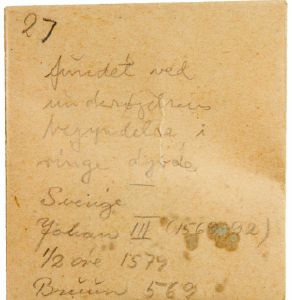 27
fundet ved
undersøgelsens
begyndelse i
ringe dybde
Sverige
Johan III (1568-92)
1/2 öre 1579
Bruun 569